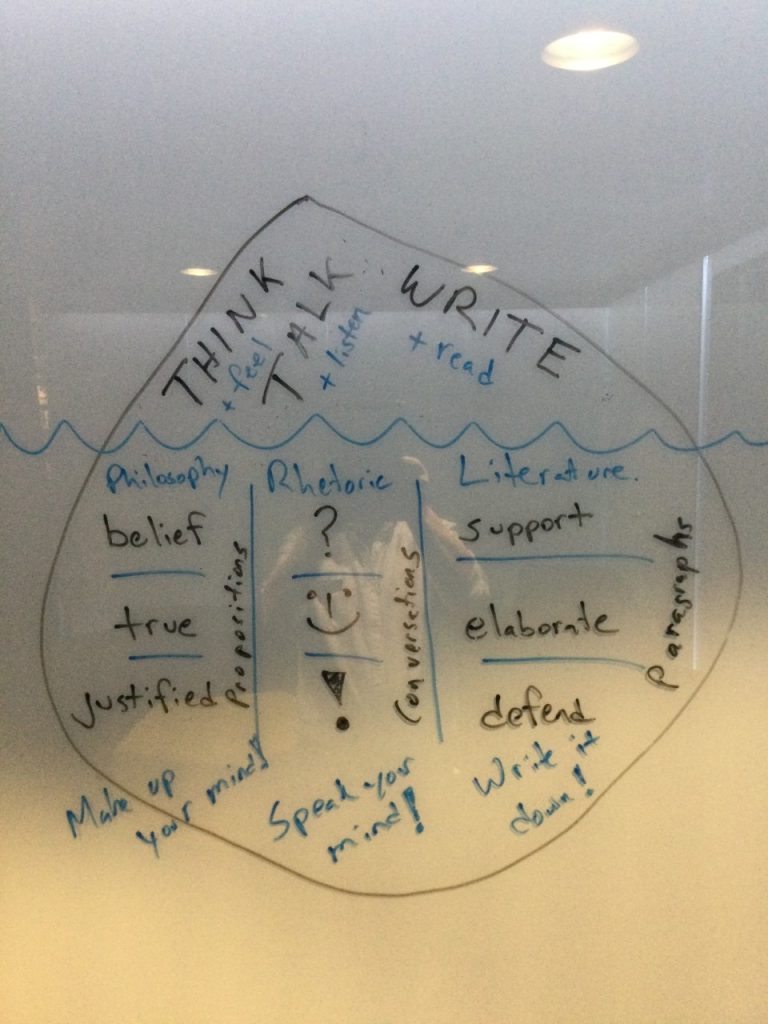 THINK
+ feel
TALK
+ listen
WRITE
+ read
Philosophy
belief
true
justified
propositions
Make up
your mind!
Rhetoric
?
(-:
!
conversations
Speak your
mind!
Literature.
support
elaborate
defend
paragraphs
Write it
down!